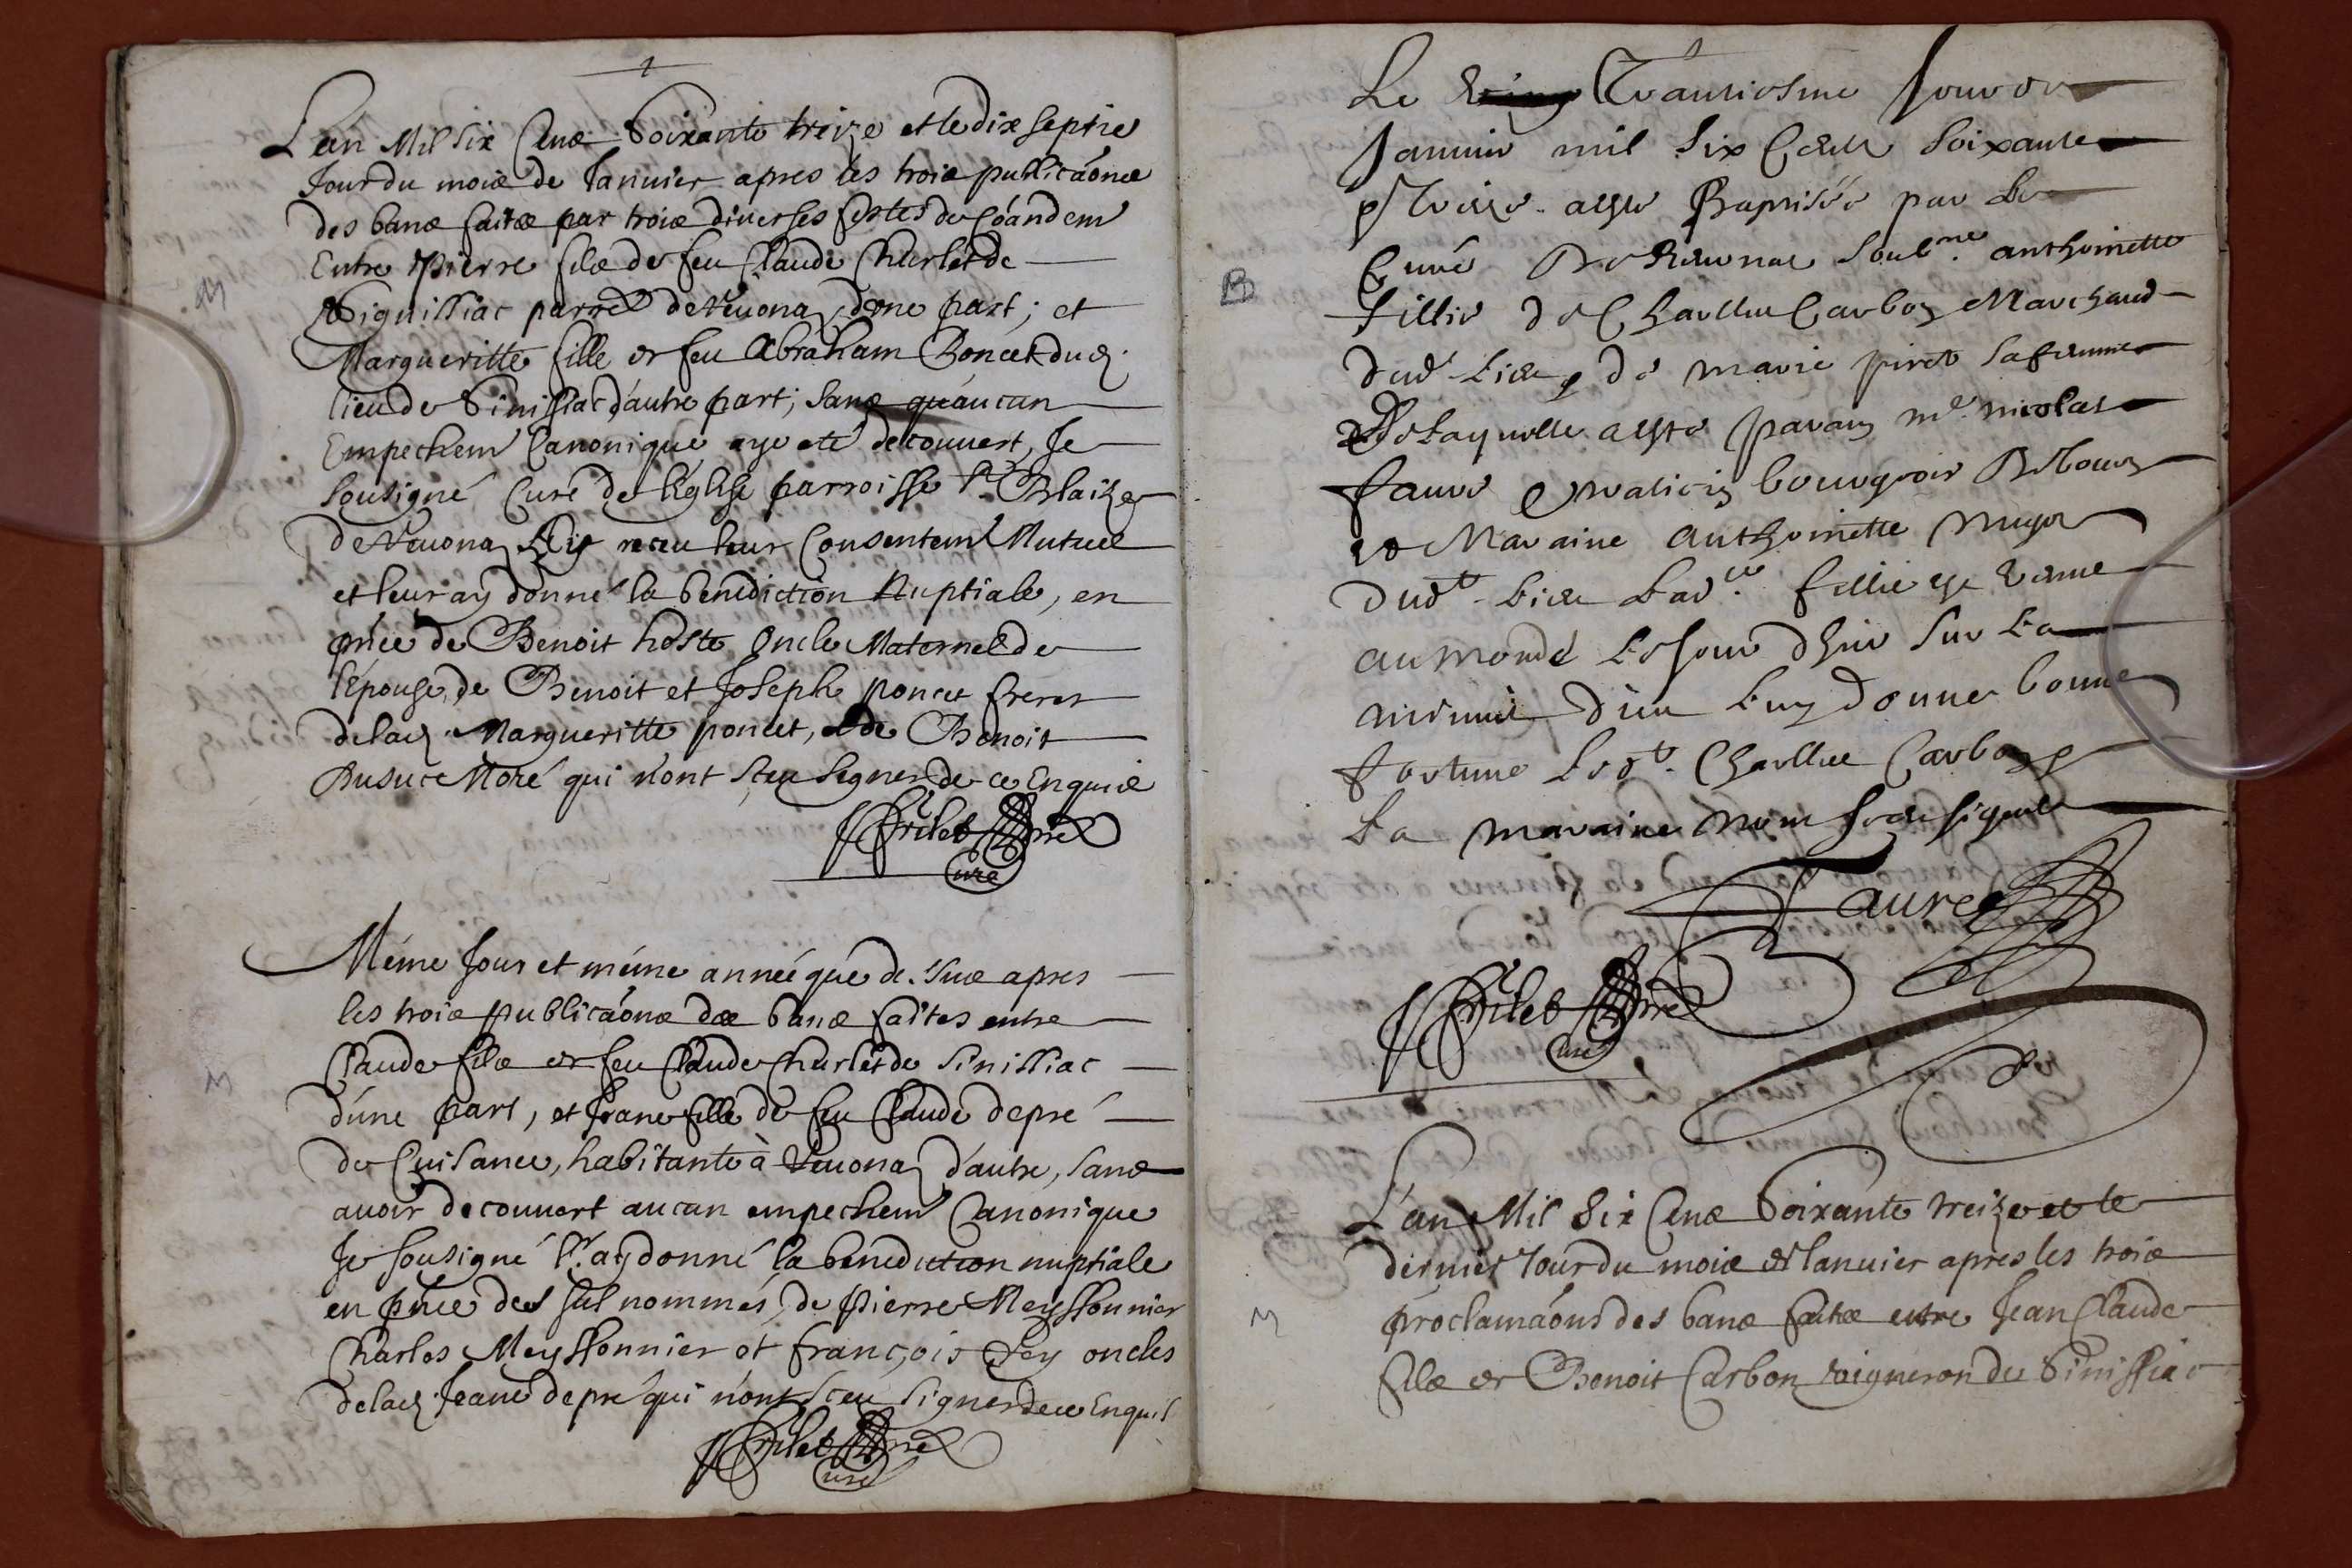 L'an Mil six Cens Soixante treize et le dix septie
Jour du mois de Januier apres les trois publicãons
des bans faites par trois diuerses festes de
Entre Pierre fils de feu Claude Churlet de
parre de Veuona, d'vne part; et
Margueritte fille de feu Abraham Poncet dud.
lieu de Sinissiac d'autre part; sans qu'aucun
Empechem Canonique aye eté decouuert, Je
Sousigné Curé de l'Eglise parroisse St Blaize
de Veuona, Ay receu leur Consentemt Mutuel
et leur ay donné la benediction Nuptiale, en
pñce de Benoit hoste Oncle Maternel de
l'Epouse, de Benoit et Joseph poncet freres
de lad. Margueritte poncet, et de Benoit
Moré qui n'ont sceu signer de ce Enquis
Curé
Méme Jour et méme année que de. sus apres
les trois publicãons des bans faites entre
Claude fils de feu Claude Churlet de Sinissiac
d'une part, et Jeane fille de feu Claude depré
de Cuisance, habitante à Veuona, d'autre, sans
auoir decouuert aucun empechem Canonique
Je sousigné l'. ay donné la benediction nuptiale
en pñce des sus nommés, de Pierre Meyssonnier
Charles Meyssonnier et françois Rey oncles
de lad. Jeane depré qui n'ont sceu signer de ce Enquis
Curé
M
Le Trantiesme Jour de
Januier mil six Cents Soixante
et Treize a este Baptisée par Le
Curé De Veuonas soubne. anthoinette
fillie de Charlles Carbon Marchand
dud. Lieu et de marie piret sa femme
De Laquelle a este parain mre. nicolas
faure bourgeois
et Maraine anthoinette
dudt. Lieu Ladte. fillie est venue
au monde Le Jour dhuy sur La
minuit dieu Luy donne bonne
fortune Ledt. Charlles Carbon et
La maraine nont sceu signer
Faure
Curé
B
L'an Mil Six Cens Soixante treize et le
dernier Jour du mois de Januier apres les trois
proclamãons des bans faites entre Jean Claude
fils de Benoit Carbon vigneron de Sinissiac
M